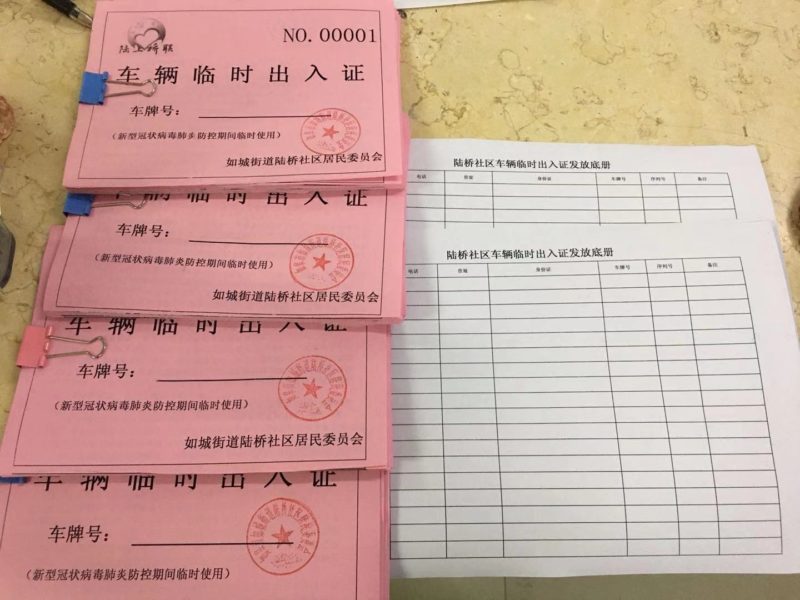 陆上锦联
NO. 00001
车辆临时出入证
车牌号：
（新型冠状病毒肺炎防控期间临时使用）
如城街道陆桥社区居民委员会
车辆临时出入证
车牌号：
（新型冠状病毒肺炎防控期间临时使用）
如城街道陆桥社区居民委员会
车辆临时出入证
车牌号：
（新型冠状病毒肺炎防控期间临时使用）
如城街道陆桥社区居民委员会
车辆临时出入证
车牌号：
（新型冠状病毒肺炎防控期间临时使用）
陆桥社区车辆临时出入证发放底册
电话 身份证 车牌号 序列号 备注
陆桥社区车辆临时出入证发放底册
电话 身份证 车牌号 序列号 备注